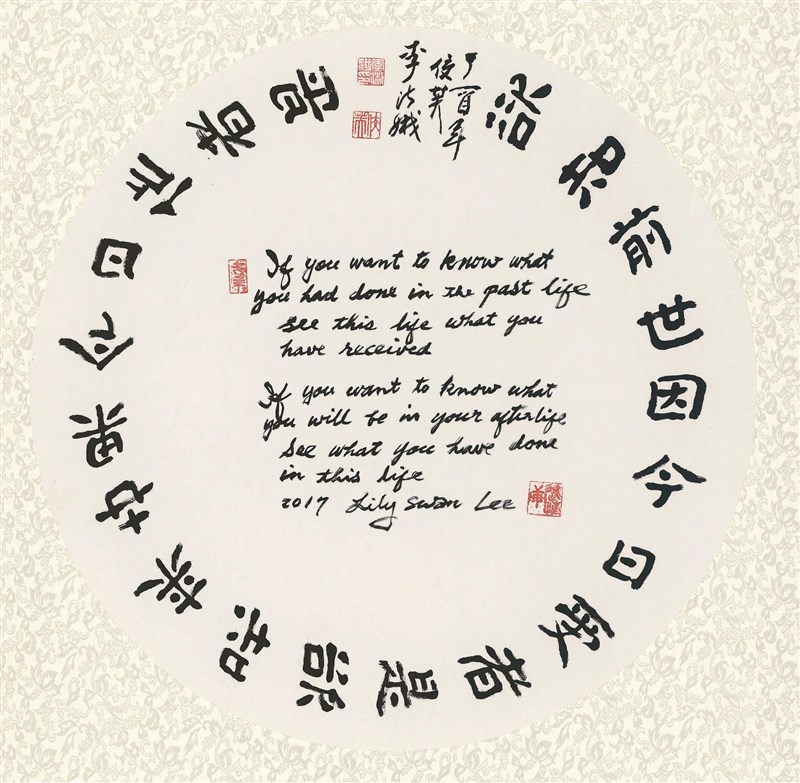 欲知前世因今日受者是欲知来世果今日作者是
丁酉年
李
If you want to know what
you had done in the past life
see this life what you
have received
If you want to know what
you will be in your afterlife
See what you have done
in this life
2017 Lily Swan Lee